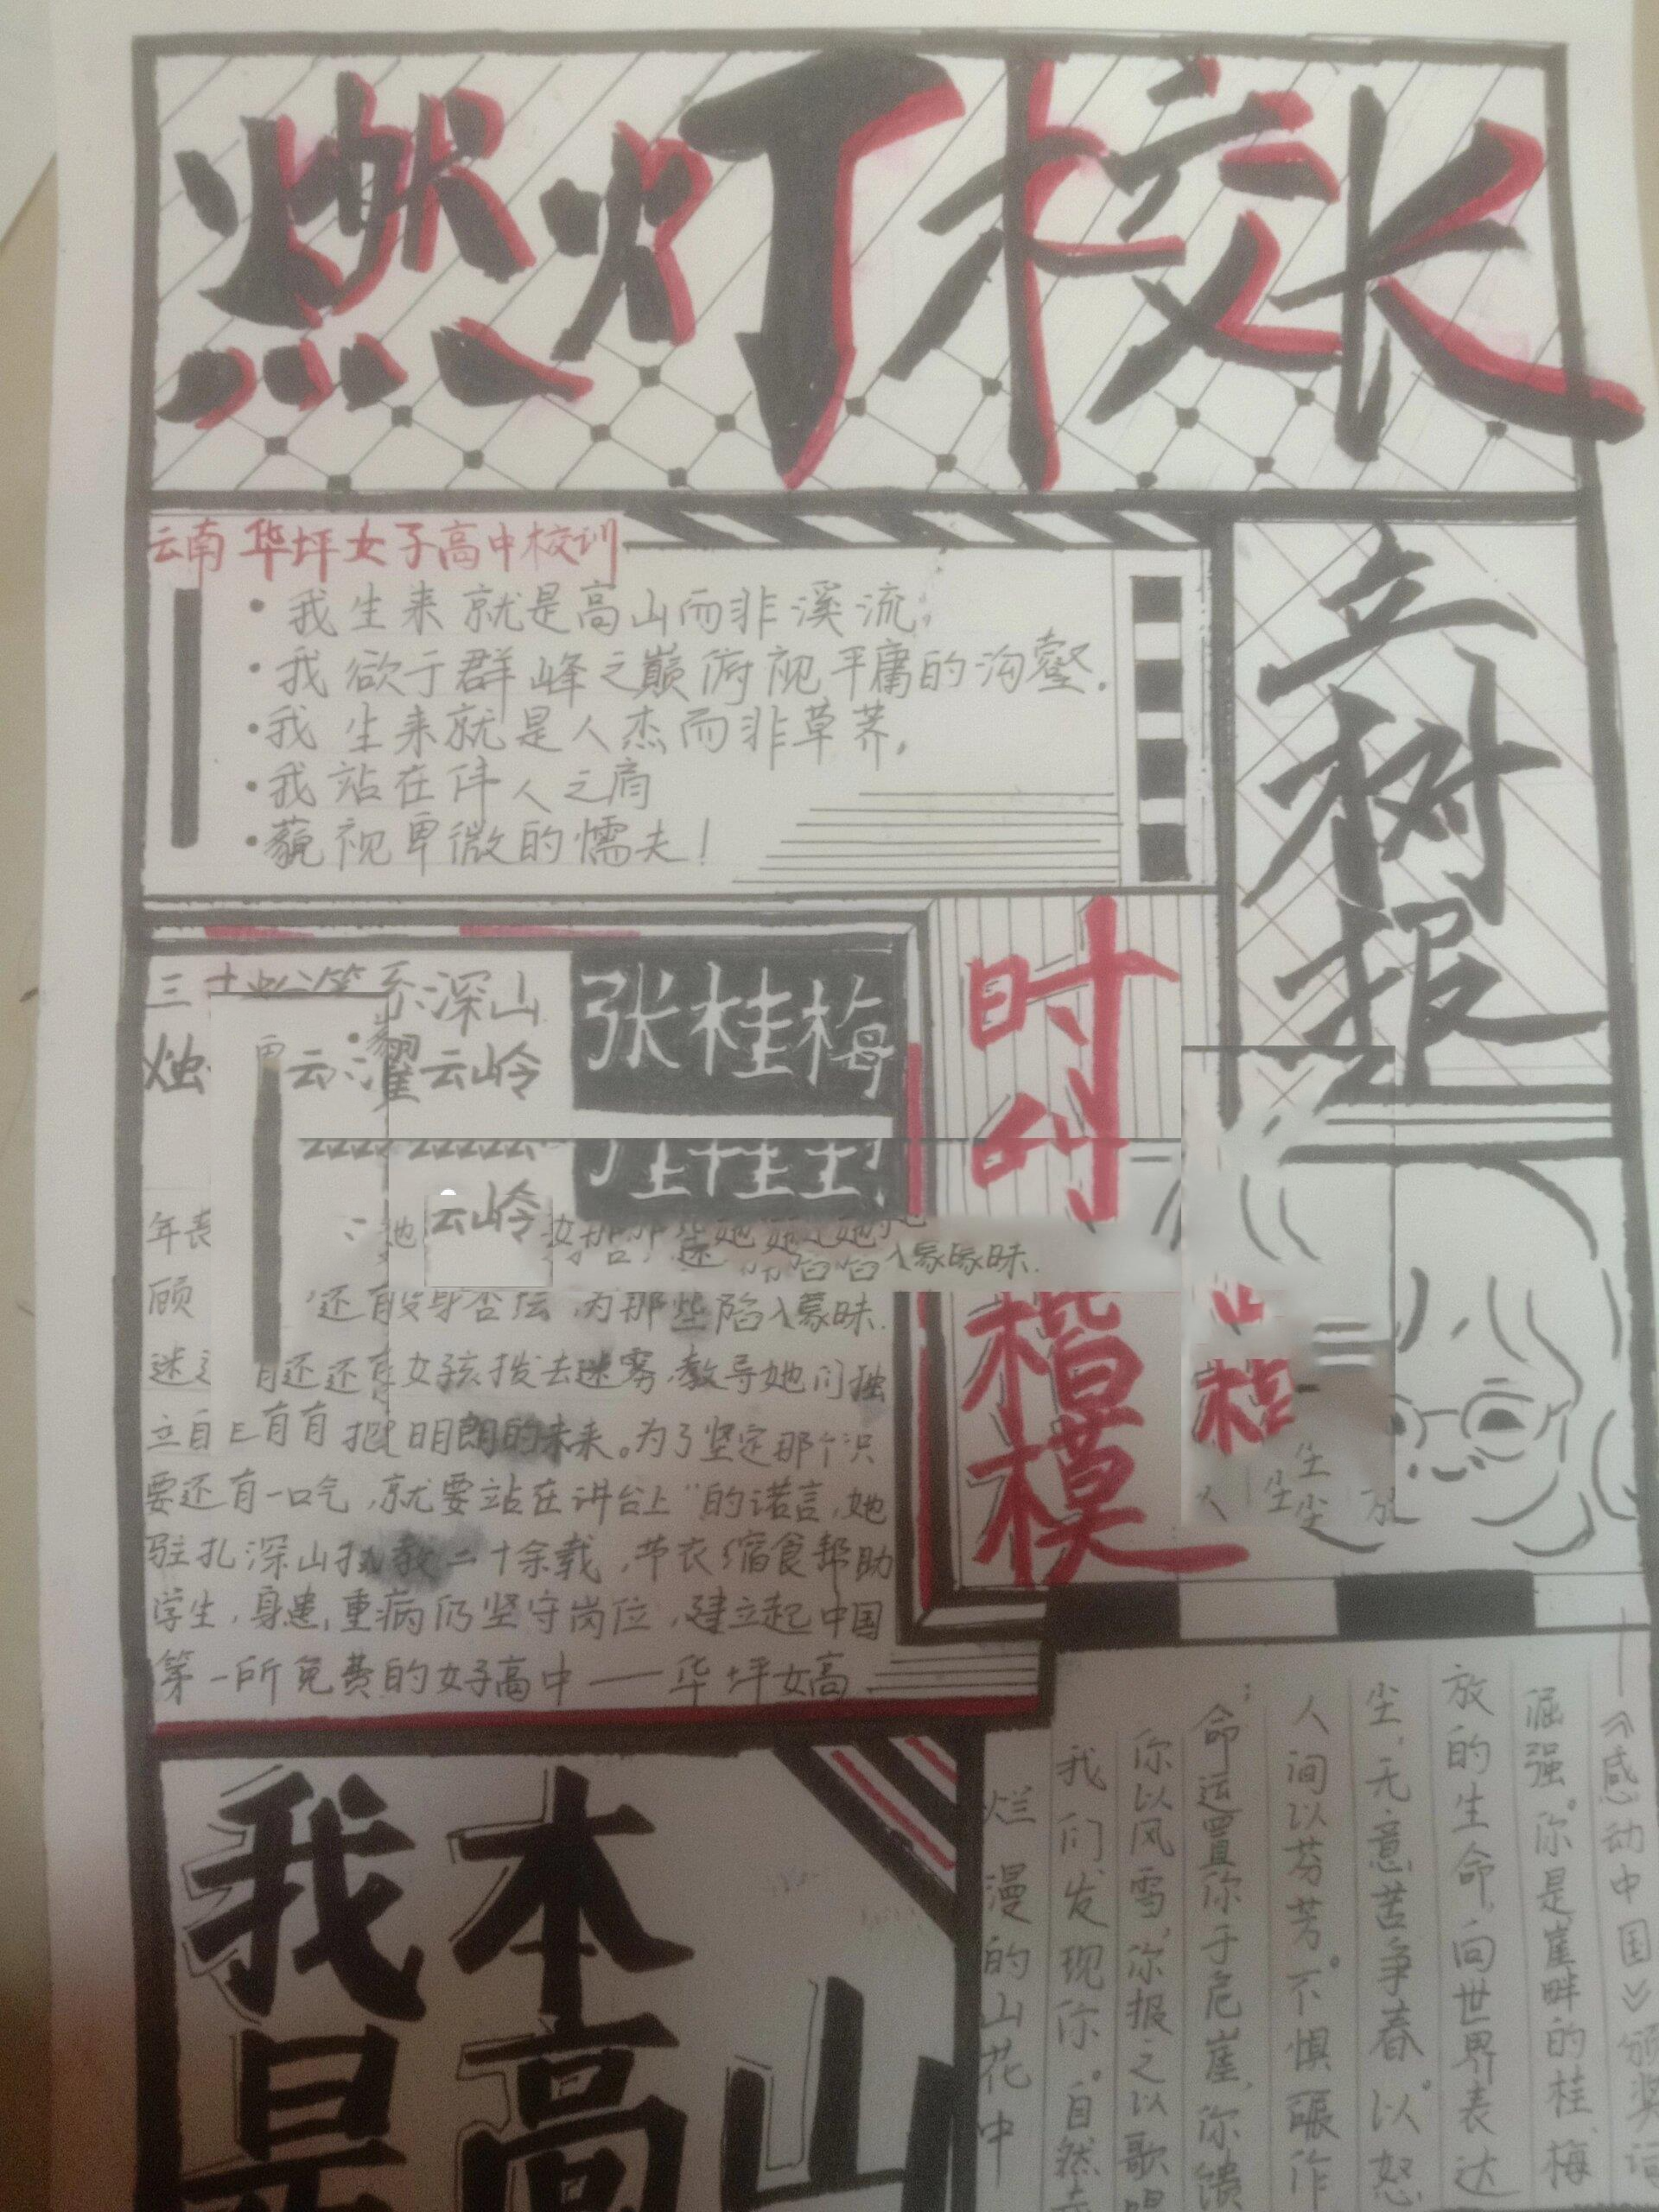 燃灯校长
云南华坪女子高中校训
·我生来就是高山而非溪流,
·我欲于群峰之巅俯视平庸的沟壑.
·我生来就是人杰而非草芥,
·我站在伟人之肩
·藐视卑微的懦夫!
立树报
深山
烛
云岭
张桂梅
云岭
时
代
楷模
年表
顾
那些陷入蒙昧.
女孩拨去迷雾,教导她们独
立自
明朗的未来。为了坚定那个"只
要还有一口气,就要站在讲台上"的诺言,她
驻扎深山执教二十余载,节衣缩食帮助
学生,身患重病仍坚守岗位,建立起中国
第一所免费的女子高中——华坪女高.
我本
是高山
烂漫的山花中
我们发现你。自然
你以风雪,你报之以歌唱
命运置你于危崖,你馈
人间以芬芳。不惧碾作
尘,无意苦争春。以怒
放的生命,向世界表达
倔强。你是崖畔的桂,梅
——《感动中国》颁奖词